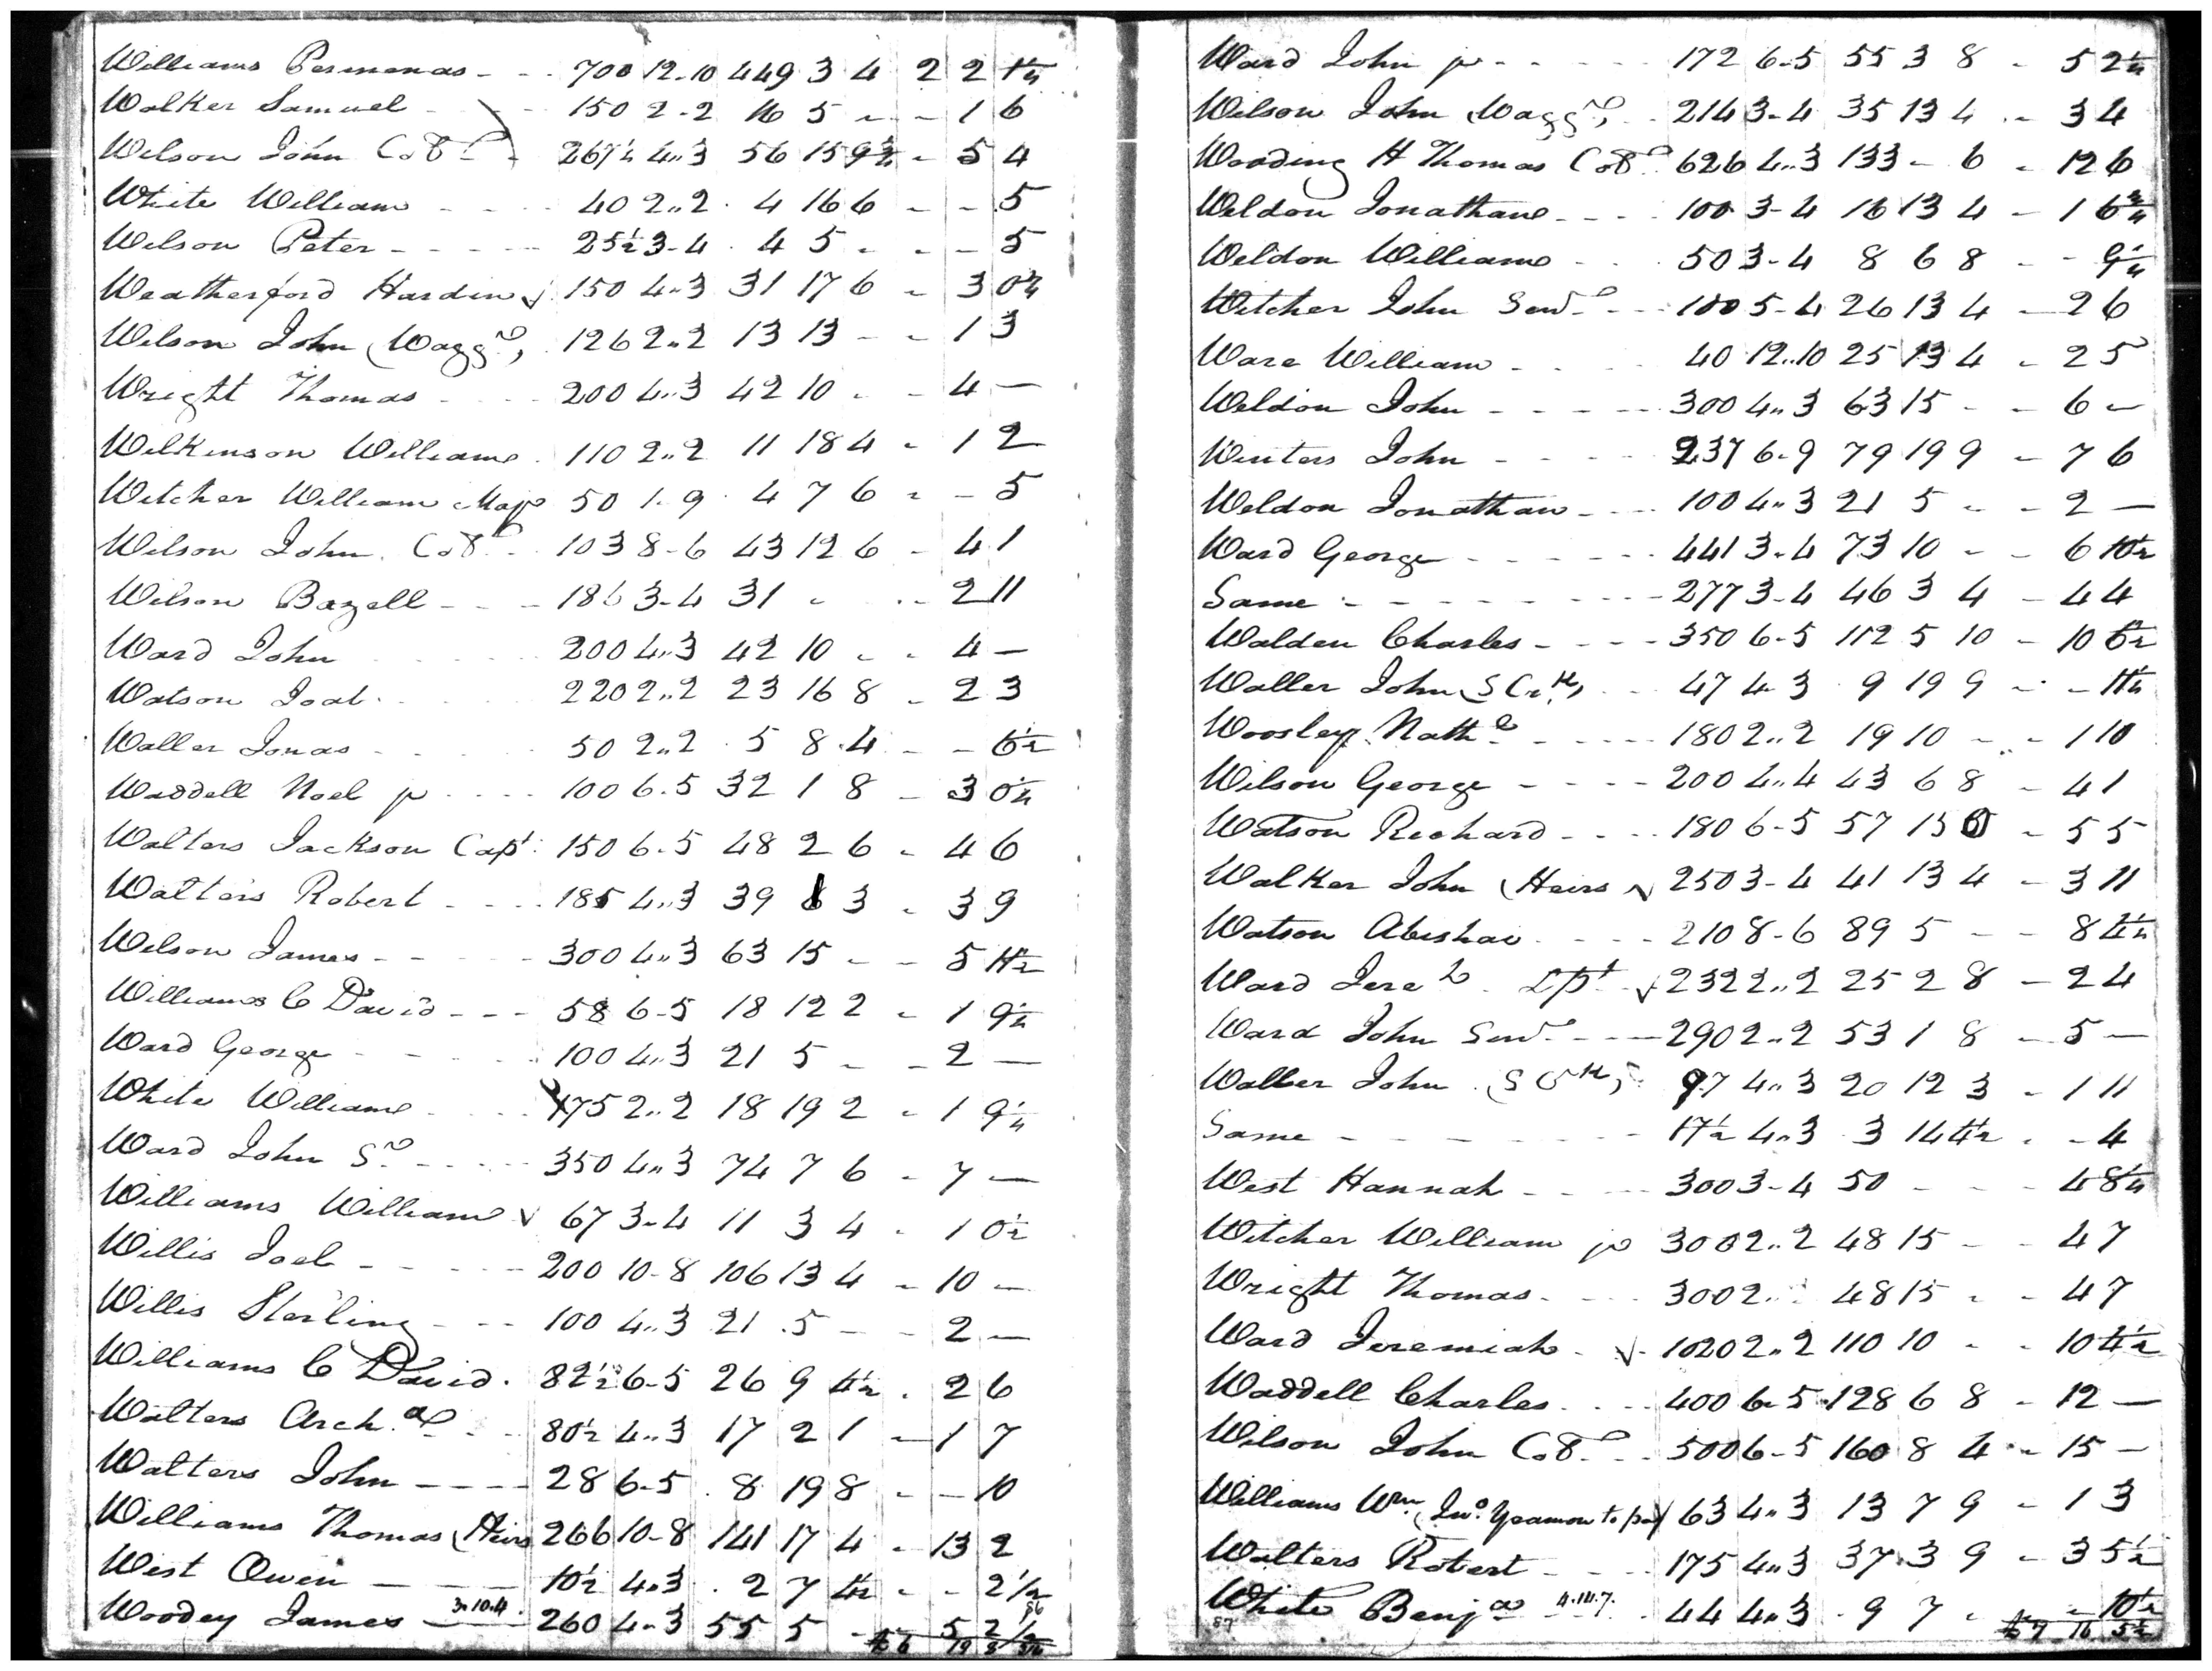 Williams Permenas - - 700 12.10 449 3 4 2 2 1¼
Walker Samuel - 150 2-2 16 5 - - 1 6
Wilson John Colº - 267½ 4.3 56 15 9¾ - 5 4
White William - - - 40 2..2 4 16 6 - - 5
Wilson Peter - - - - 25½ 3-4 4 5 - - - 5
Weatherford Hardin √ 150 4.3 31 17 6 - 3 0¾
Wilson John (Waggr) 126 2..2 13 13 - - 1 3
Wright Thomas - - - 200 4..3 42 10 - - 4 —
Wilkinson William 110 2..2 11 18 4 - 1 2
Witcher William Majr 50 1.9 4 7 6 - - 5
Wilson John Colº - 103 8-6 43 12 6 - 4 1
Wilson Bazell - - - 186 3-4 31 - - - 2 11
Ward John 200 4..3 42 10 - - 4 —
Watson Joab 220 2..2 23 16 8 - 2 3
Waller Jonas - - 50 2..2 5 8 4 - - 6½
Waddell Noel jr - - - 100 6.5 32 1 8 - 3 0¼
Walters Jackson Capt 150 6.5 48 2 6 - 4 6
Walters Robert - - - 185 4..3 39 6 3 - 3 9
Wilson James - - - 300 4..3 63 15 - - 5 11½
Williams C David - - - 58 6-5 18 12 2 - 1 9¼
Ward George - - - 100 4..3 21 5 - - 2 —
White William - - 175 2..2 18 19 2 - 1 9¼
Ward John Sr - - - - 350 4..3 74 7 6 - 7 —
Williams William √ 67 3-4 11 3 4 - 1 0½
Willis Joel - - - - 200 10-8 106 13 4 - 10 —
Willis Starling - - - 100 4..3 21 5 - - 2 —
Williams C David. 82½ 6-5 26 9 4½ - 2 6
Walters Archd - - 80½ 4..3 17 2 1 - 1 7
Walters John - - - - 28 6-5 8 19 8 - - 10
Williams Thomas (Heirs 266 10-8 141 17 4 - 13 2
West Owen — — 10½ 4.3 2 7 4½ - - 2½
Woodey James 3.10.4. 260 4-3 55 5 - - 5 2½
Ward John jr - - - - 172 6-5 55 3 8 - 5 2¼
Wilson John (Waggr) - 214 3-4 35 13 4 - 3 4
Wooding H Thomas Colº 626 4..3 133 - 6 - 12 6
Weldon Jonathan - - - 100 3-4 16 13 4 - 1 6¾
Weldon William - - 50 3-4 8 6 8 - - 9¼
Witcher John Senr - - - 100 5-4 26 13 4 - 2 6
Ware William - - - 40 12..10 25 13 4 - 2 5
Weldon John - - - - - 300 4..3 63 15 - - 6 —
Winters John - - - - 237 6-9 79 19 9 - 7 6
Weldon Jonathan - - - 100 4..3 21 5 - - 2 —
Ward George - - - - - 441 3-4 73 10 - - 6 10½
Same - - - - - - - 277 3-4 46 3 4 - 4 4
Walden Charles - - - - 350 6-5 112 5 10 - 10 6½
Waller John (S Crk) - - 47 4.3 9 19 9 - - 11¼
Woosley Nathl - - - - 180 2..2 19 10 - - 1 10
Wilson George - - - - 200 4..4 43 6 8 - 4 1
Watson Richard - - - - 180 6-5 57 15 0 - 5 5
Walker John (Heirs √ 250 3-4 41 13 4 - 3 11
Watson Abishai - - - 210 8-6 89 5 - - 8 4¼
Ward Jereh √ 232 2..2 25 2 8 - 2 4
Ward John Senr - - - 290 2..2 53 1 8 - 5 —
Waller John (S Crk) 97 4..3 20 12 3 - 1 11
Same - - - - - - - 17½ 4..3 3 14 4½ - - 4
West Hannah - - - - 300 3-4 50 - - - 4 8¼
Witcher William jr 300 2..2 48 15 - - 4 7
Wright Thomas - - - 300 2.. 48 15 - - 4 7
Ward Jeremiah - √ - 1020 2..2 110 10 - - 10 4½
Waddell Charles - - - 400 6-5 128 6 8 - 12 —
Wilson John Colº - - 500 6-5 160 8 4 - 15 —
Williams Wm (Jnº Yeamon to pay 63 4..3 13 7 9 - 1 3
Walters Robert - - - 175 4..3 37 3 9 - 3 5½
White Benja 4.14.7. 44 4..3 9 7 - - - 10½
87 £7 16 5½